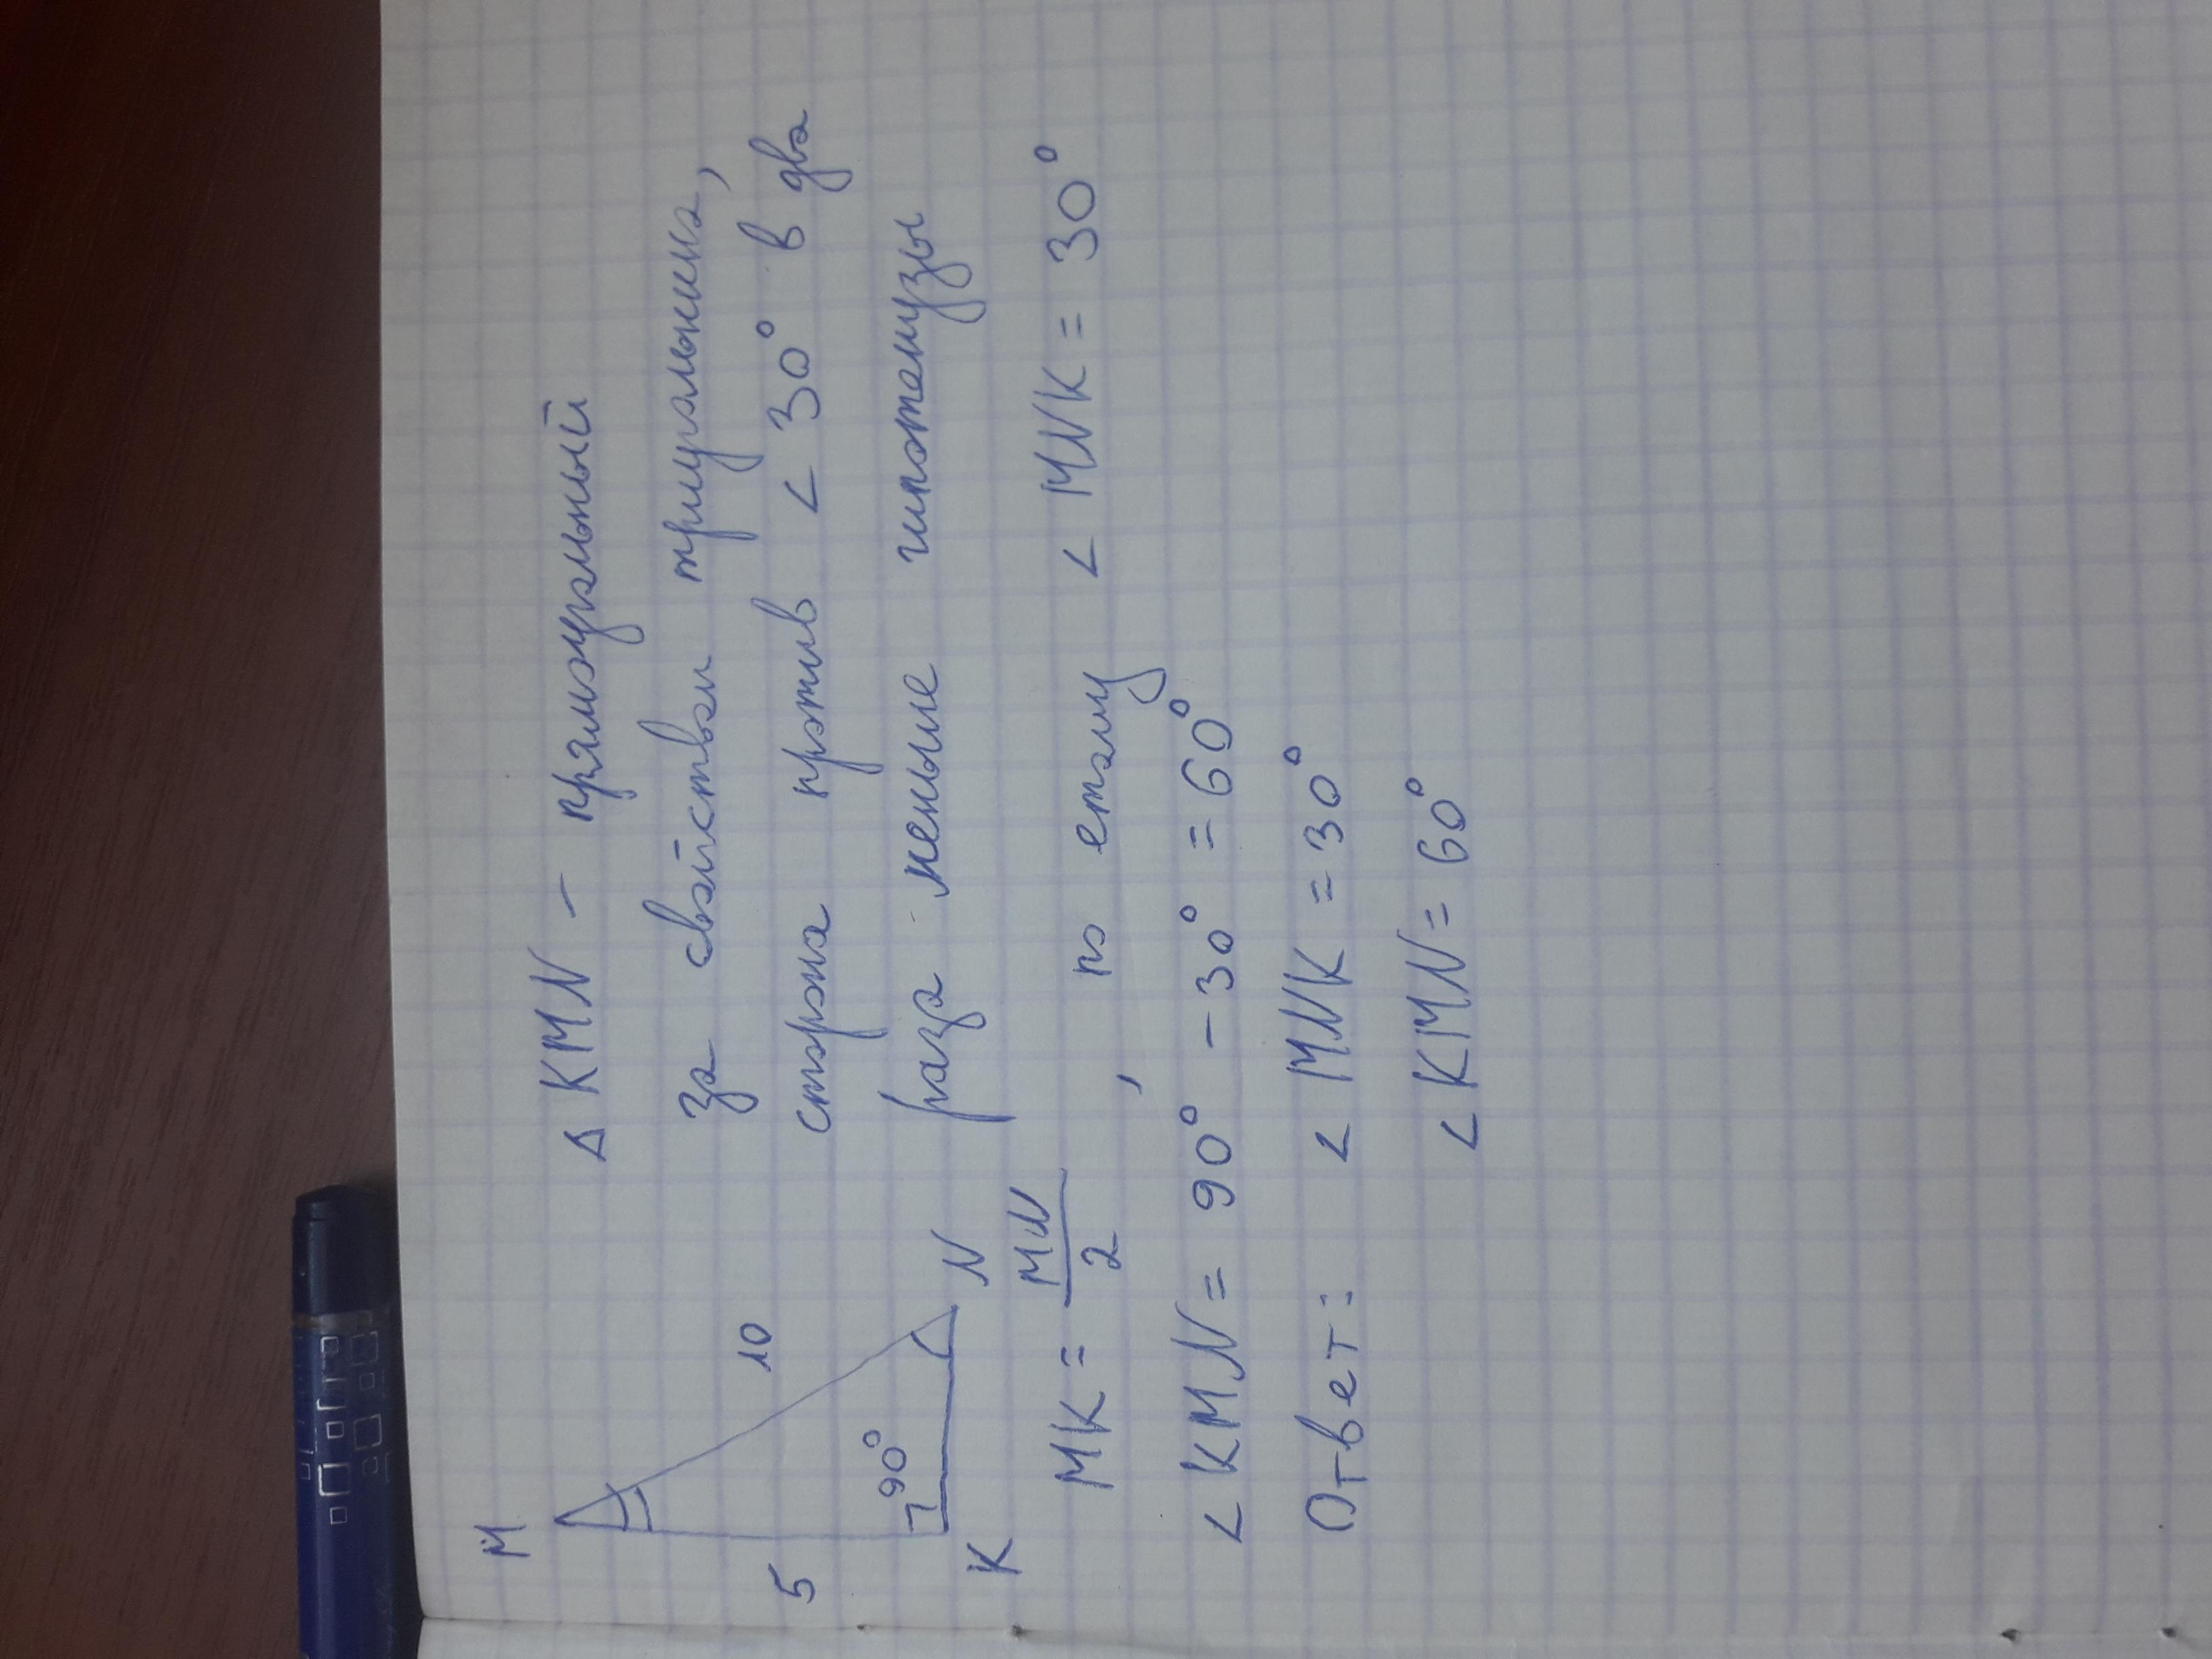 M
5
10
90°
K
N
Δ KMN - прямоугольный
за свойством триугольника,
сторона против < 30° в два
раза меньше гипотенузы
MK = MN/2, по етому < MNK = 30°
< KMN = 90° - 30° = 60°
Ответ: < MNK = 30°
< KMN = 60°